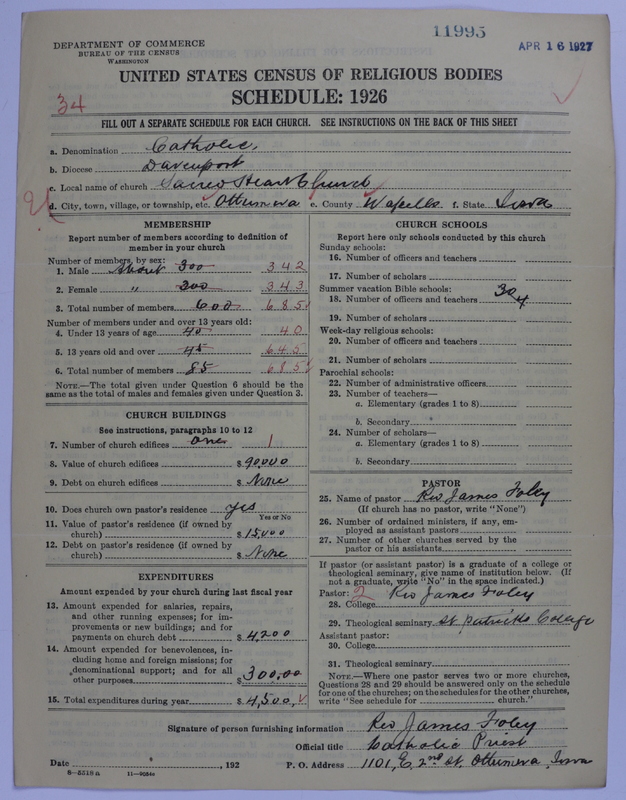 11995
APR 16 1927
DEPARTMENT OF COMMERCE
BUREAU OF THE CENSUS
WASHINGTON
UNITED STATES CENSUS OF RELIGIOUS BODIES
34
SCHEDULE: 1926
FILL OUT A SEPARATE SCHEDULE FOR EACH CHURCH. SEE INSTRUCTIONS ON THE BACK OF THIS SHEET
a. Denomination Catholic.
b. Diocese Davenport
c. Local name of church Sacred Heart Church
d. City, town, village, or township, etc. Ottumwa e. County Wapello f. State Iowa
MEMBERSHIP
Report number of members according to definition of
member in your church
Number of members, by sex:
1. Male about 300 342
2. Female " 300 343
3. Total number of members 600 685
Number of members under and over 13 years old:
4. Under 13 years of age 40 40
5. 13 years old and over 45 645
6. Total number of members 85 685
NOTE.—The total given under Question 6 should be the
same as the total of males and females given under Question 3.
CHURCH BUILDINGS
See instructions, paragraphs 10 to 12
7. Number of church edifices one 1
8. Value of church edifices $ 90,000
9. Debt on church edifices $ None
10. Does church own pastor's residence yes
Yes or No
11. Value of pastor's residence (if owned by
church) $ 15,000
12. Debt on pastor's residence (if owned by
church) $ None
EXPENDITURES
Amount expended by your church during last fiscal year
13. Amount expended for salaries, repairs,
and other running expenses; for im-
provements or new buildings; and for
payments on church debt $ 4,200
14. Amount expended for benevolences, in-
cluding home and foreign missions; for
denominational support; and for all
other purposes $ 300,00
15. Total expenditures during year $ 4,500,
CHURCH SCHOOLS
Report here only schools conducted by this church
Sunday schools:
16. Number of officers and teachers
17. Number of scholars
Summer vacation Bible schools:
18. Number of officers and teachers 30
19. Number of scholars
Week-day religious schools:
20. Number of officers and teachers
21. Number of scholars
Parochial schools:
22. Number of administrative officers
23. Number of teachers—
a. Elementary (grades 1 to 8)
b. Secondary
24. Number of scholars—
a. Elementary (grades 1 to 8)
b. Secondary
PASTOR
25. Name of pastor Rev James Foley
(If church has no pastor, write "None")
26. Number of ordained ministers, if any, em-
ployed as assistant pastors
27. Number of other churches served by the
pastor or his assistants
If pastor (or assistant pastor) is a graduate of a college or
theological seminary, give name of institution below. (If
not a graduate, write "No" in the space indicated.)
Pastor: 2 Rev James Foley
28. College
29. Theological seminary St Patricks College
Assistant pastor:
30. College
31. Theological seminary
NOTE.—Where one pastor serves two or more churches,
Questions 28 and 29 should be answered only on the schedule
for one of the churches; on the schedules for the other churches,
write "See schedule for church."
Signature of person furnishing information Rev James Foley
Official title Catholic Priest
Date , 192 P. O. Address 1101, E, 2nd St, Ottumwa, Iowa
8—5519a 11—9234a